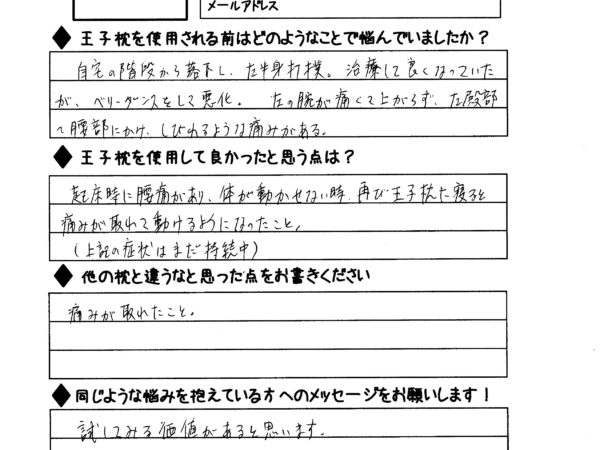 メールアドレス
◆王子枕を使用される前はどのようなことで悩んでいましたか？
自宅の階段から落下し、左半身打撲。治療して良くなっていた
が、ベリーダンスをして悪化。 左の腕が痛くて上がらず、左殿部
〜腰部にかけ、しびれるような痛みがある。
◆王子枕を使用して良かったと思う点は？
起床時に腰痛があり、体が動かせない時、再び王子枕で寝ると
痛みが取れて動けるようになったこと。
(上記の症状はまだ持続中)
◆他の枕と違うなと思った点をお書きください
痛みが取れたこと。
◆同じような悩みを抱えている方へのメッセージをお願いします！
試してみる価値があると思います。